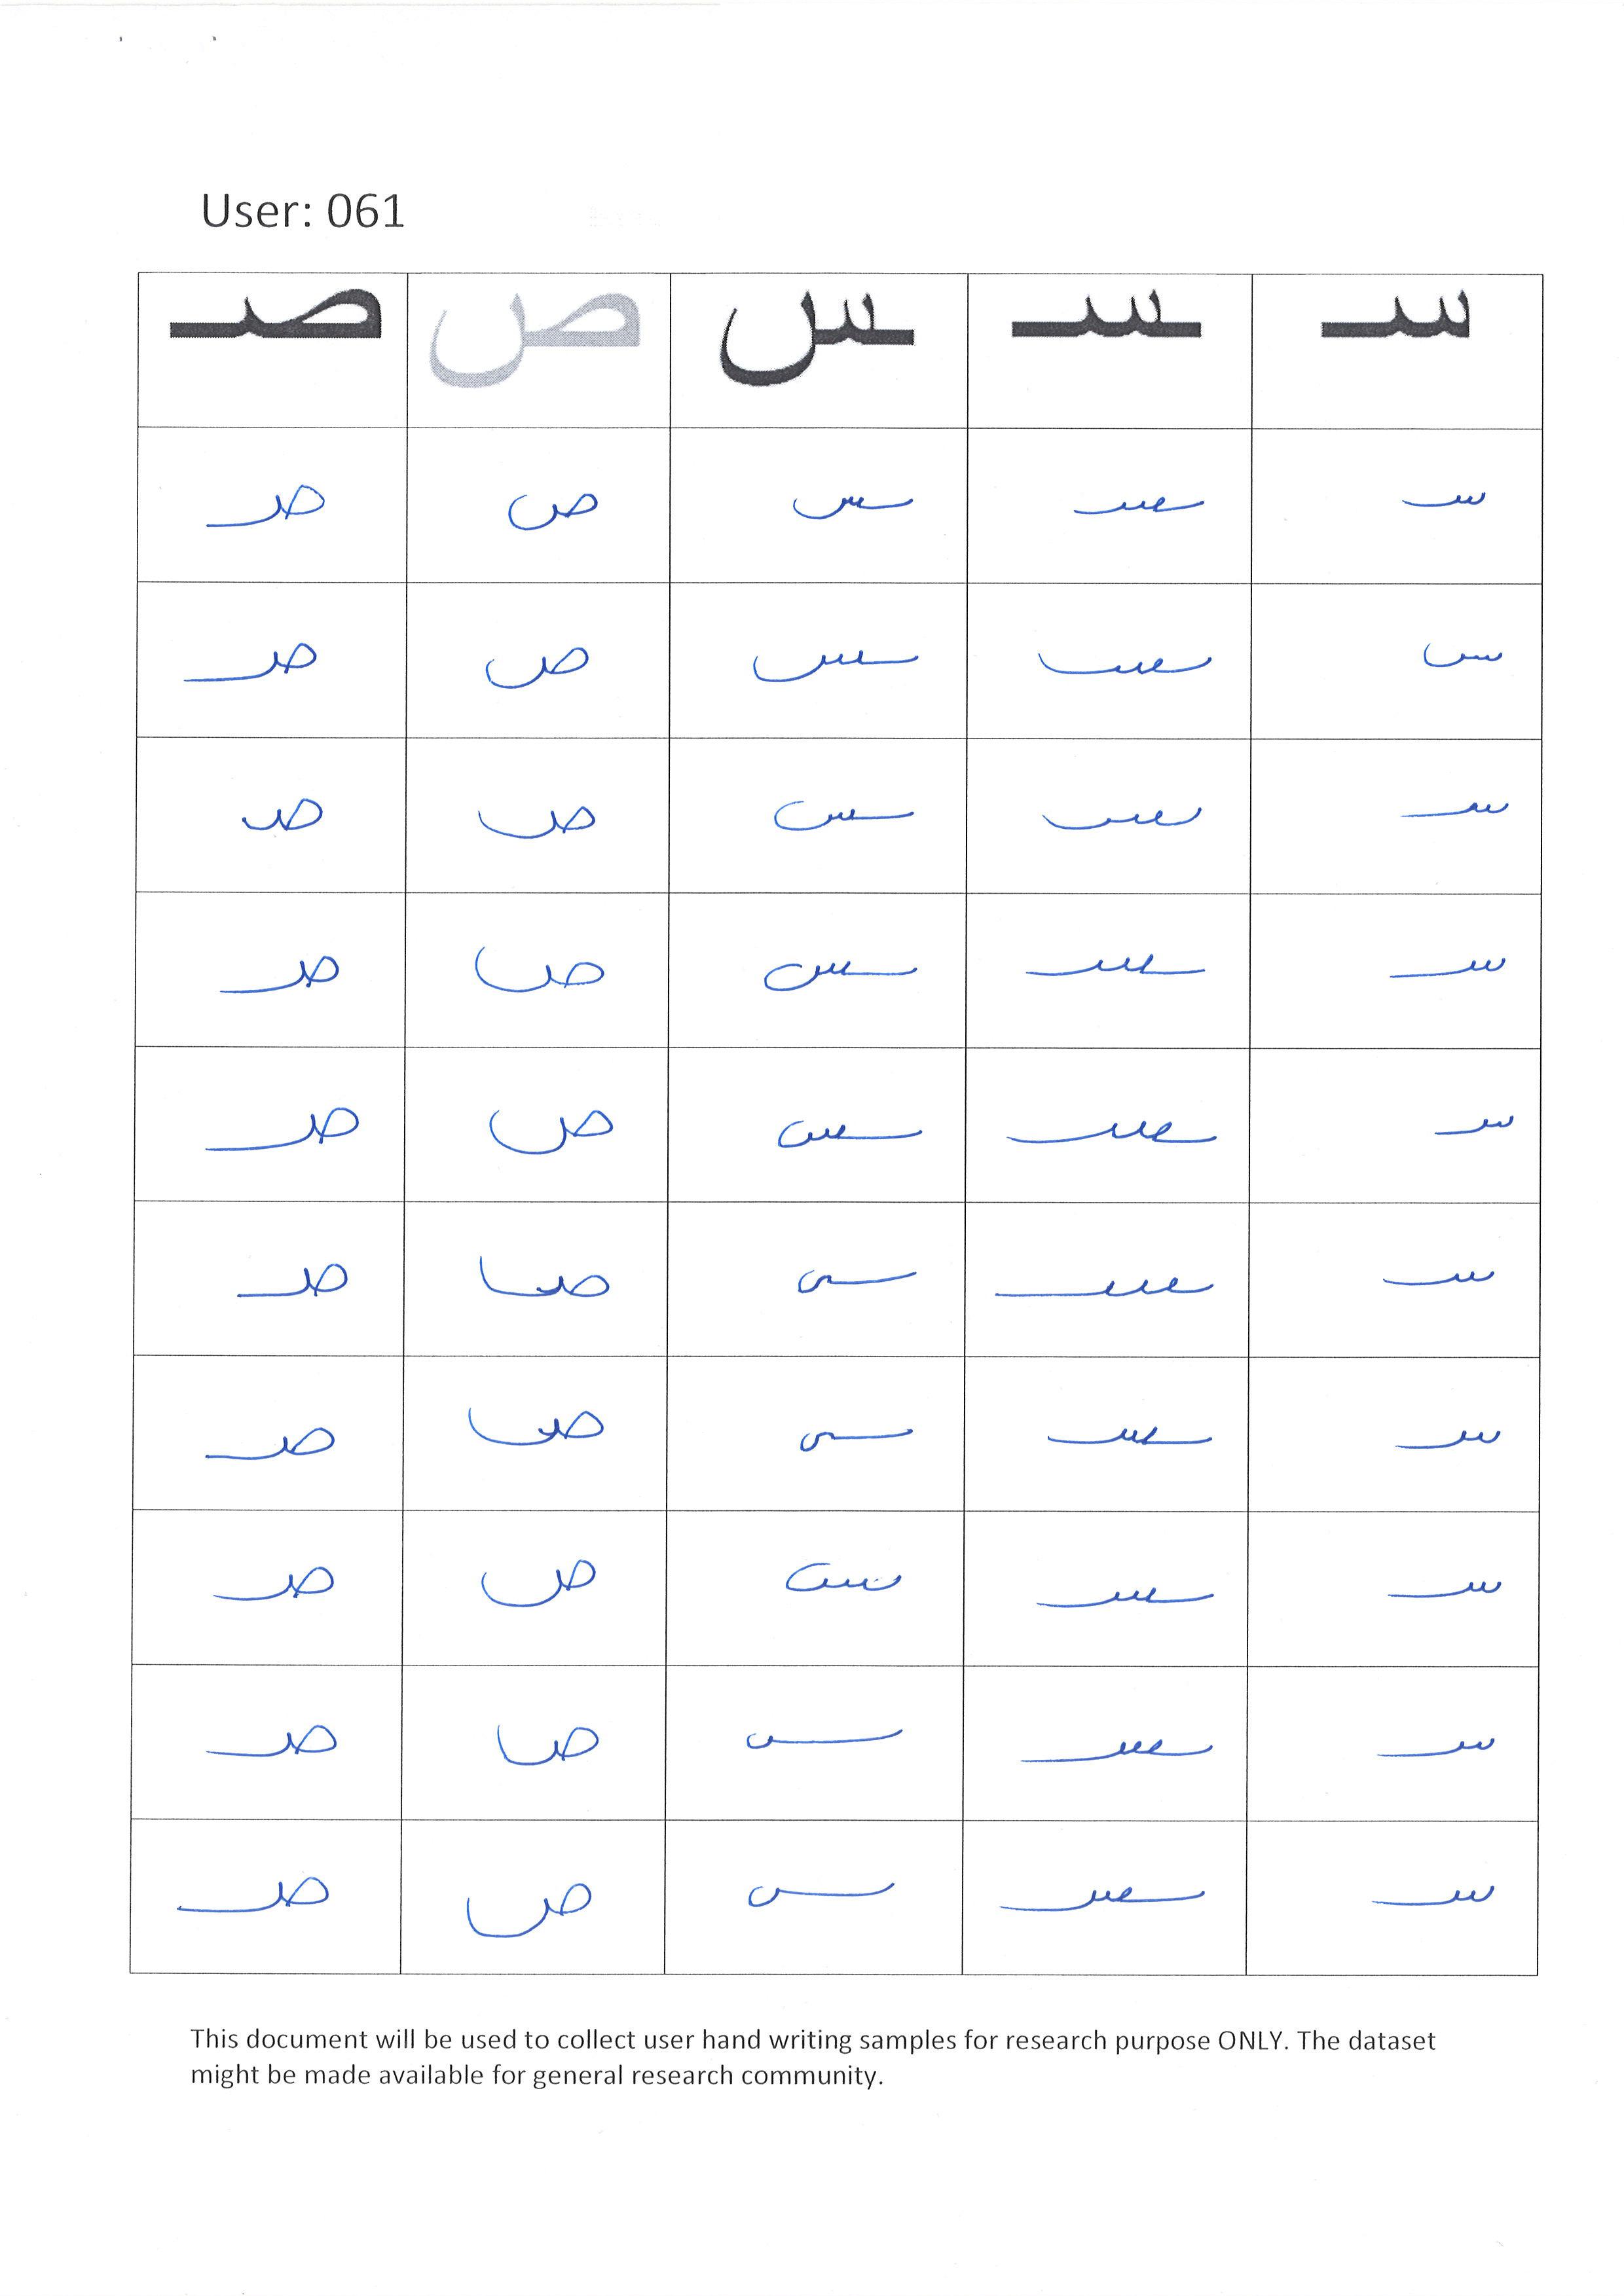 User: 061
سـ ـسـ ـس ص صـ
سـ ـسـ ـس ص صـ
سـ ـسـ ـس ص صـ
سـ ـسـ ـس ص صـ
سـ ـسـ ـس ص صـ
سـ ـسـ ـس ص صـ
سـ ـسـ ـس ص صـ
سـ ـسـ ـس ص صـ
سـ ـسـ ـس ص صـ
سـ ـسـ ـس ص صـ
سـ ـسـ ـس ص صـ
This document will be used to collect user hand writing samples for research purpose ONLY. The dataset
might be made available for general research community.